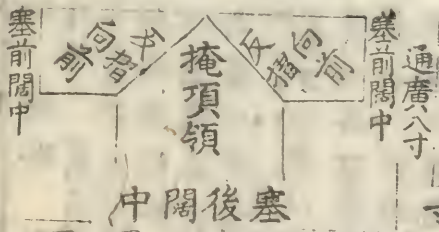 通廣八寸
塞前闊中
反摺向前
掩項領
反摺向前
塞前闊中
塞後闊中